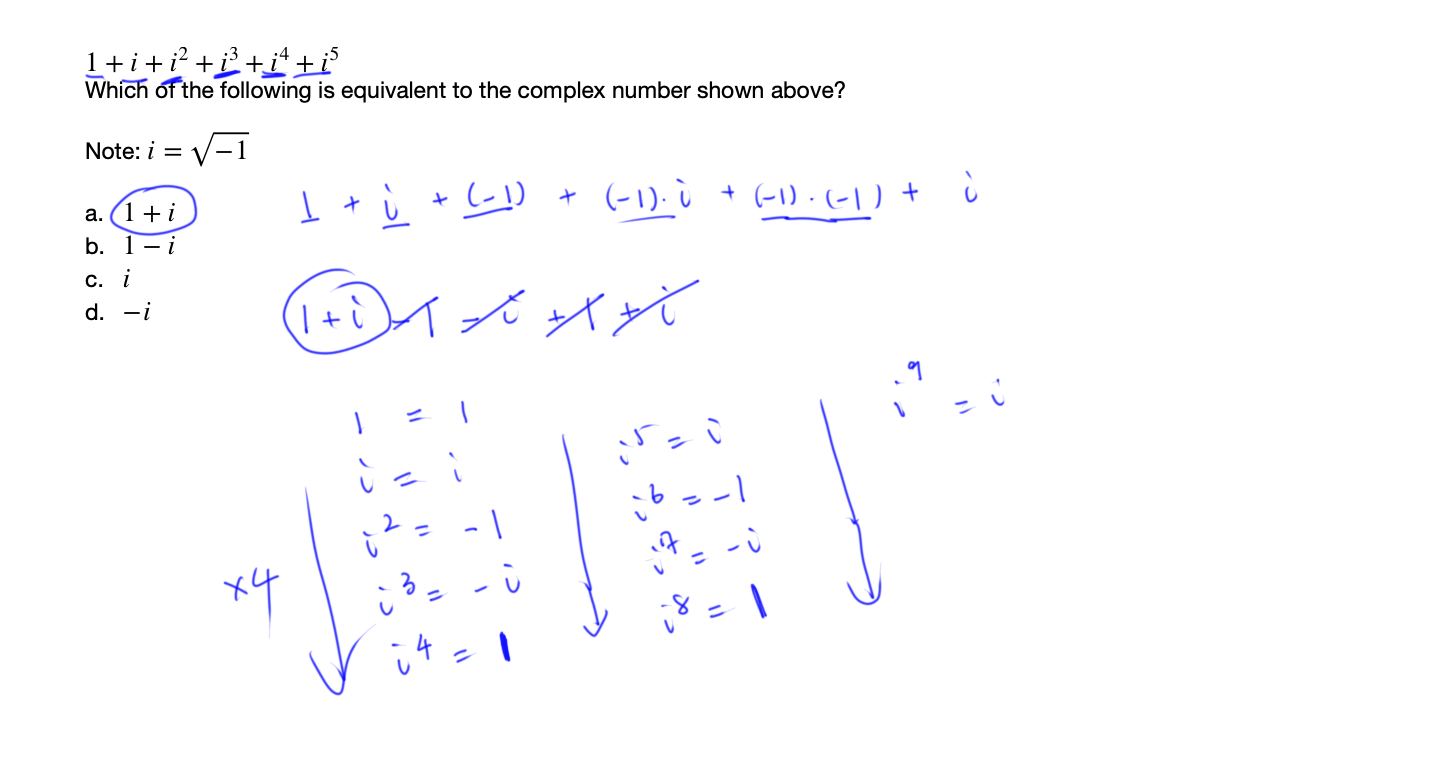 1 + i + i² + i³ + i⁴ + i⁵
Which of the following is equivalent to the complex number shown above?
Note: i = √−1
a. 1 + i
b. 1 − i
c. i
d. −i
1 + i + (-1) + (-1)·i + (-1)·(-1) + i
1 + i - 1 - i + 1 + i
1 = 1
i = i
i² = -1
i³ = -i
i⁴ = 1
×4
i⁵ = i
i⁶ = -1
i⁷ = -i
i⁸ = 1
i⁹ = i